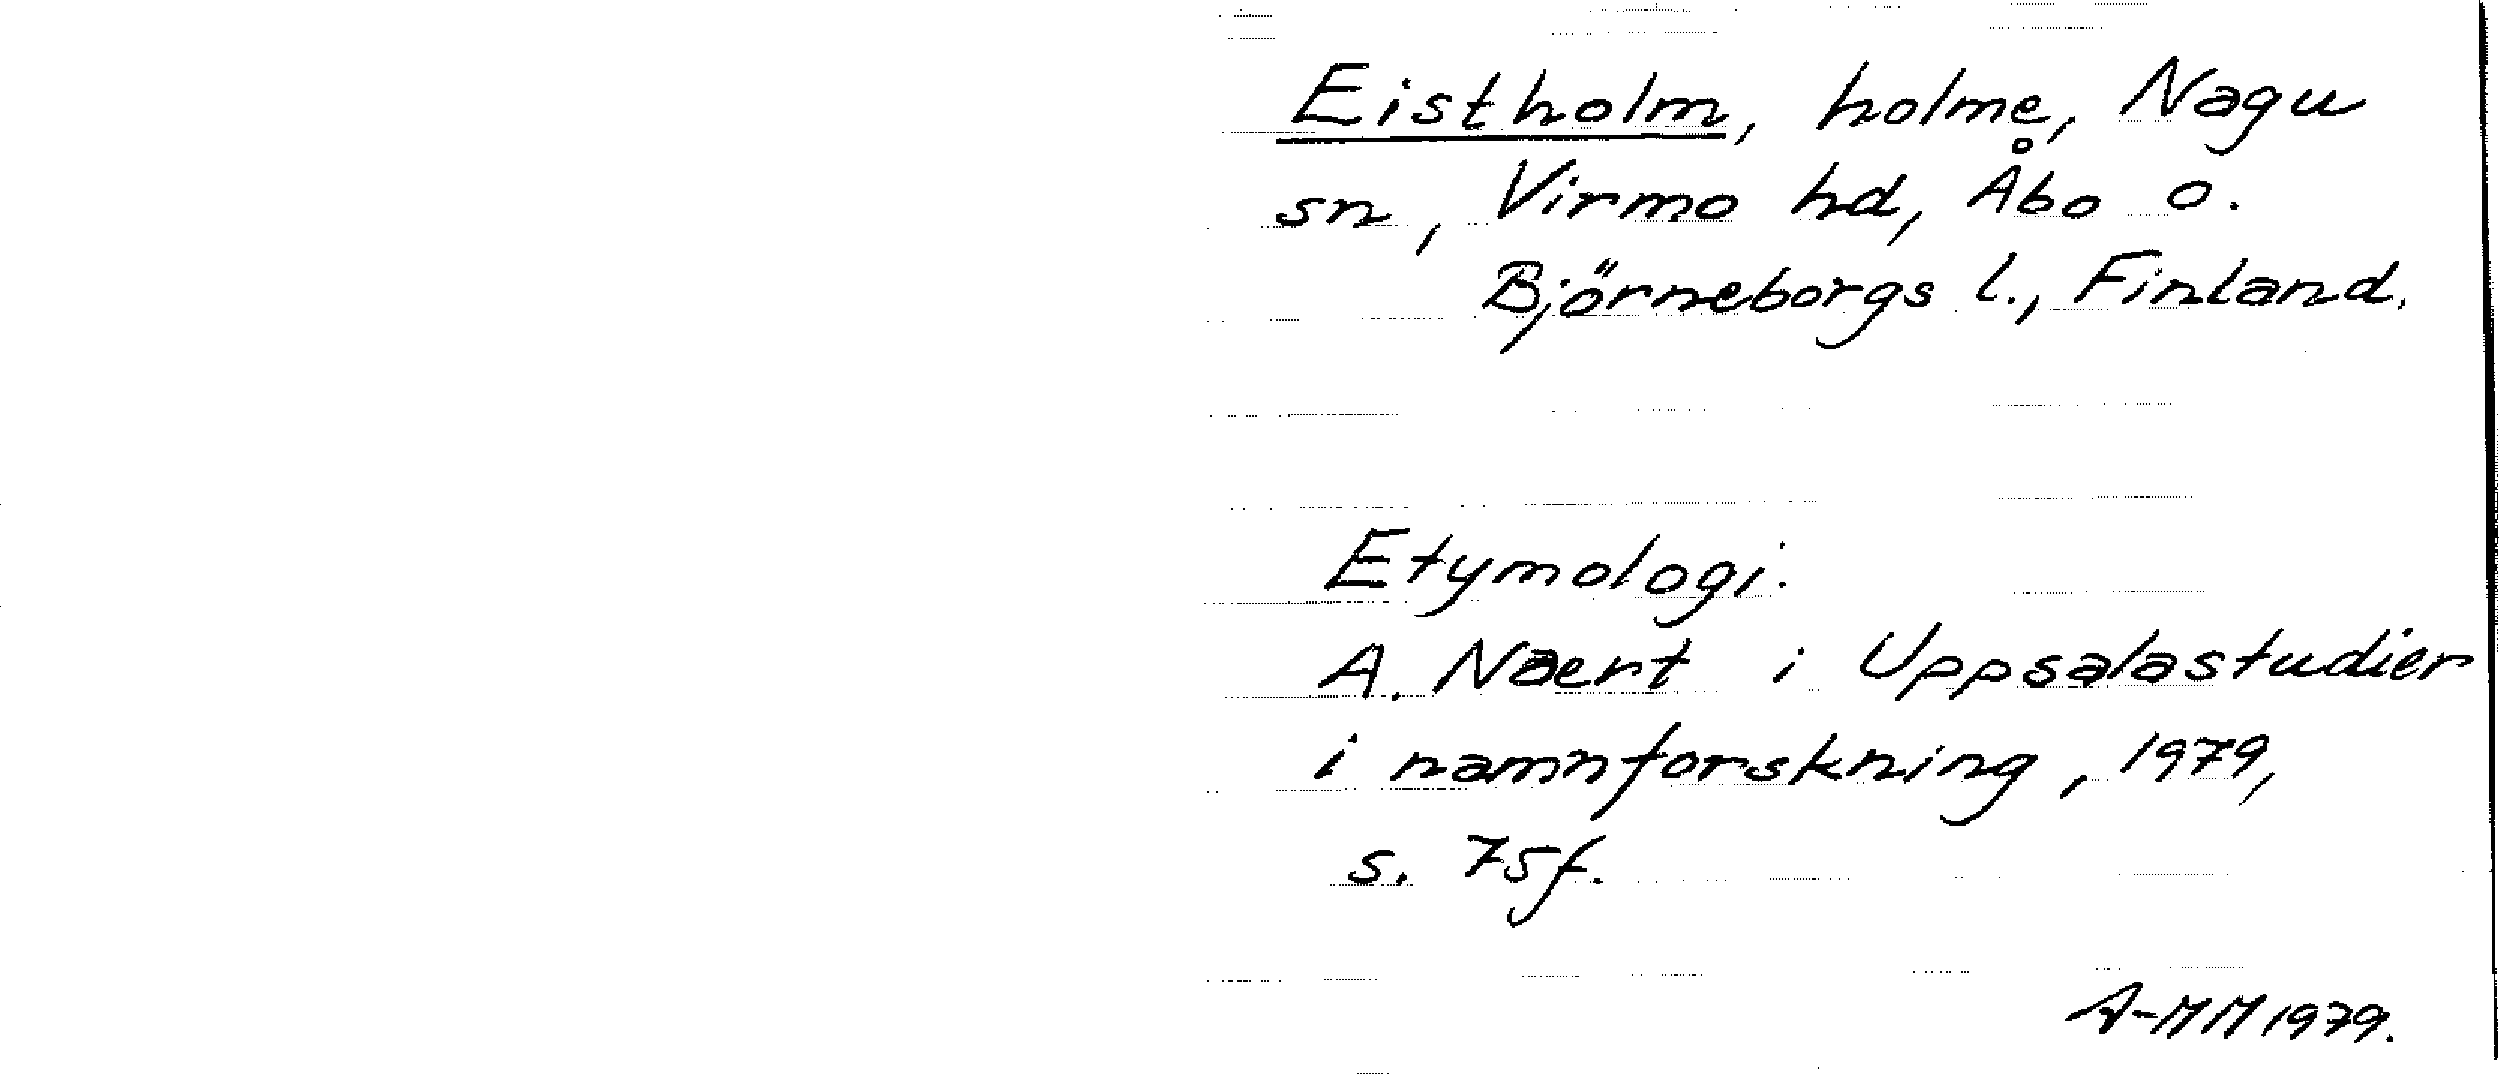 Eistholm, holme, Nagu
sn, Virmo hd, Åbo o.
Björneborgs l., Finland.
Etymologi:
A. Naert i Uppsalastudier
i namnforskning, 1979,
s. 75f.
A-MM 1979.